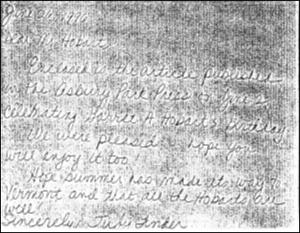 June 26, 1996
Dear Mr. Hobart
Enclosed is the article published
in the Asbury Park Press on June 3
celebrating Garret A Hobart's birthday.
We were pleased - hope you
will enjoy it too!
Hope summer has made its way to
Vermont and that all the Hobarts are
well!
Sincerely,